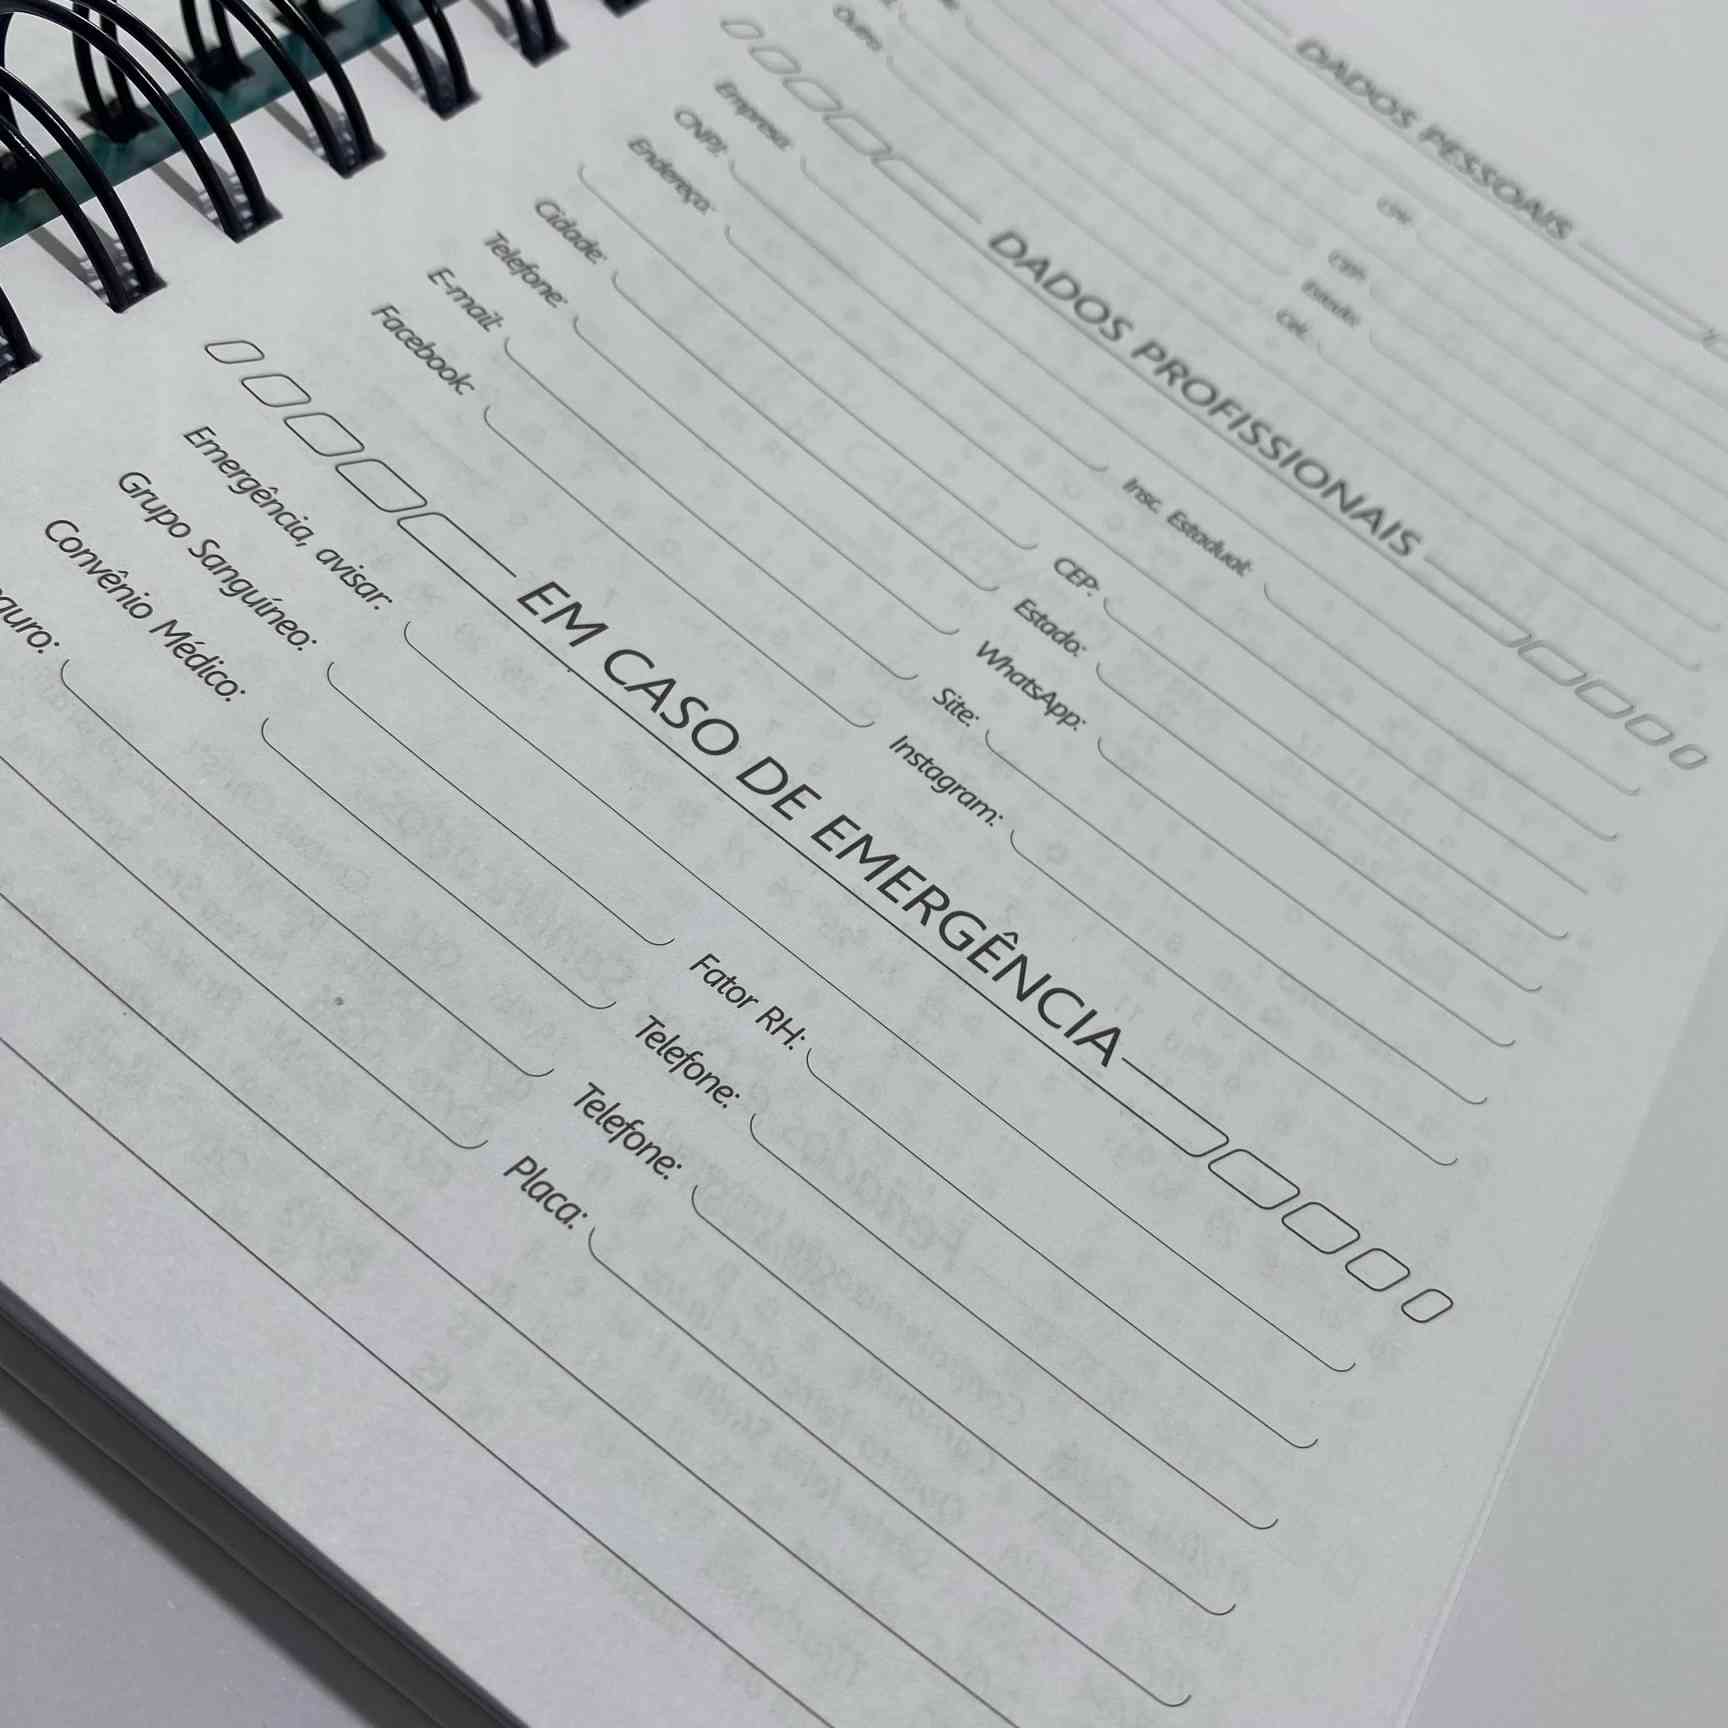 DADOS PESSOAIS
CPF:
CEP:
Estado:
Cel.:
Outro:
DADOS PROFISSIONAIS
Empresa:
CNPJ: Insc. Estadual:
Endereço:
CEP:
Cidade: Estado:
Telefone: WhatsApp:
E-mail: Site:
Facebook: Instagram:
EM CASO DE EMERGÊNCIA
Emergência, avisar:
Grupo Sanguíneo: Fator RH:
Convênio Médico: Telefone:
guro: Telefone:
Placa: